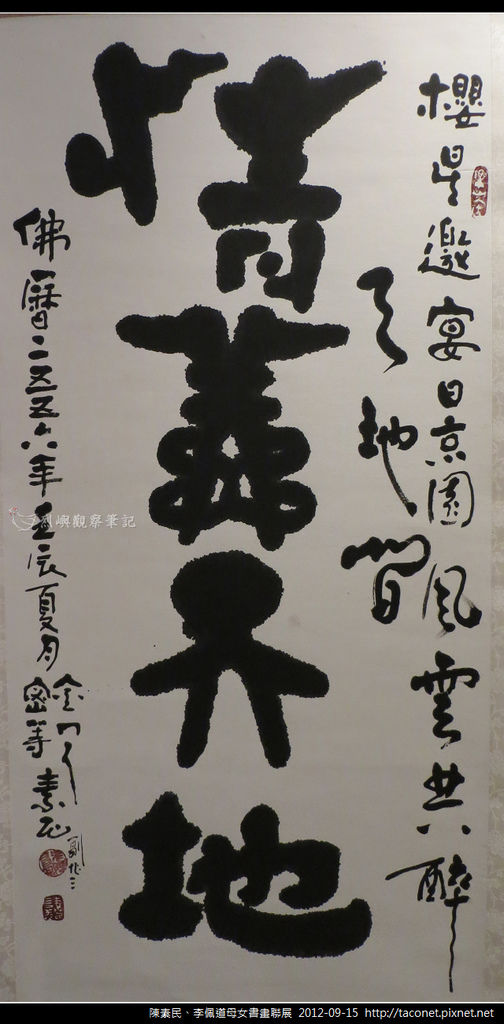 櫻星邀宴日京園風雲共醉
天地間
情義天地
佛曆二五五六年壬辰夏月
金門人
素民
烈嶼觀察筆記
陳素民、李佩道母女書畫聯展 2012-09-15 http://taconet.pixnet.net